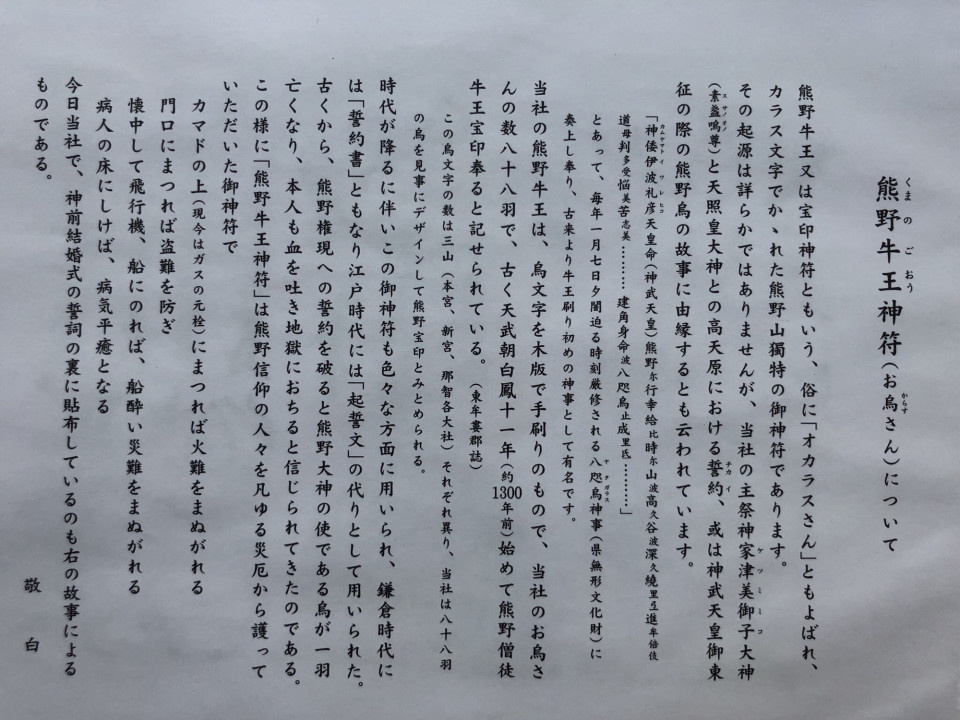 熊野牛王神符(お烏さん)について
熊野牛王又は宝印神符ともいう、俗に「オカラスさん」ともよばれ、
カラス文字でかゝれた熊野山獨特の御神符であります。
その起源は詳らかではありませんが、当社の主祭神家津美御子大神
(素盞嗚尊)と天照皇大神との高天原における誓約、或は神武天皇御東
征の際の熊野烏の故事に由縁するとも云われています。
「神倭伊波礼彦天皇命(神武天皇)熊野尓行幸給比時尓山波高久谷波深久繞里弖進牟倍伎
道母判多受悩美苦志美………建角身命波八咫烏止成里氐…………」
とあって、毎年一月七日夕闇迫る時刻厳修される八咫烏神事(県無形文化財)に
奏上し奉り、古来より牛王刷り初めの神事として有名です。
当社の熊野牛王は、烏文字を木版で手刷りのもので、当社のお烏さ
んの数八十八羽で、古く天武朝白鳳十一年(約1300年前)始めて熊野僧徒
牛王宝印奉ると記せられている。(東牟婁郡誌)
この烏文字の数は三山(本宮、新宮、那智各大社)それぞれ異り、当社は八十八羽
の烏を見事にデザインして熊野宝印とみとめられる。
時代が降るに伴いこの御神符も色々な方面に用いられ、鎌倉時代に
は「誓約書」ともなり江戸時代には「起誓文」の代りとして用いられた。
古くから、熊野権現への誓約を破ると熊野大神の使である烏が一羽
亡くなり、本人も血を吐き地獄におちると信じられてきたのである。
この様に「熊野牛王神符」は熊野信仰の人々を凡ゆる災厄から護って
いただいた御神符で
カマドの上(現今はガスの元栓)にまつれば火難をまぬがれる
門口にまつれば盗難を防ぎ
懐中して飛行機、船にのれば、船酔い災難をまぬがれる
病人の床にしけば、病気平癒となる
今日当社で、神前結婚式の誓詞の裏に貼布しているのも右の故事による
ものである。
敬白